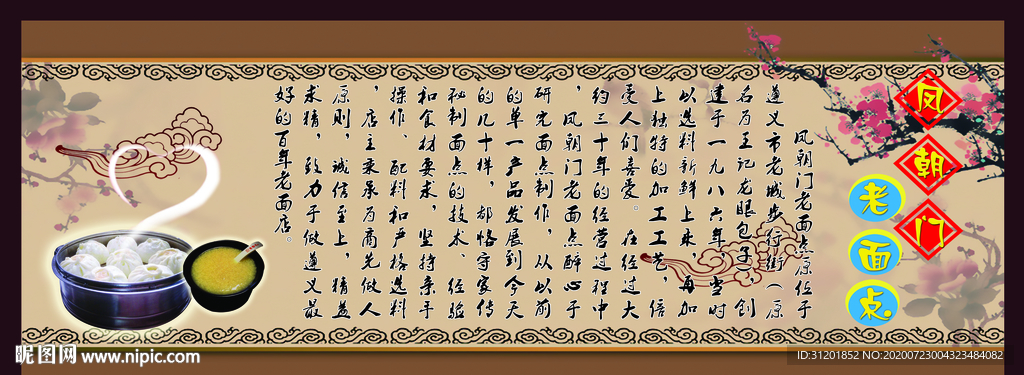 凤朝门
老面点
凤朝门老面点原位于
遵义市老城步行街(原
名为王记龙眼包子,创
建于一九八六年,当时
以选料新鲜上乘,再加
上独特的加工工艺,倍
受人们喜爱。在经过大
约三十年的经营过程中
,凤朝门老面点醉心于
研究面点制作,从以前
的单一产品发展到今天
的几十样,都恪守家传
秘制面点的技术、经验
和食材要求,坚持亲手
操作、配料和严格选料
,店主秉承为商先做人
原则,诚信至上,精益
求精,致力于做遵义最
好的百年老面店。
昵图网 www.nipic.com
ID:31201852 NO:20200723004323484082